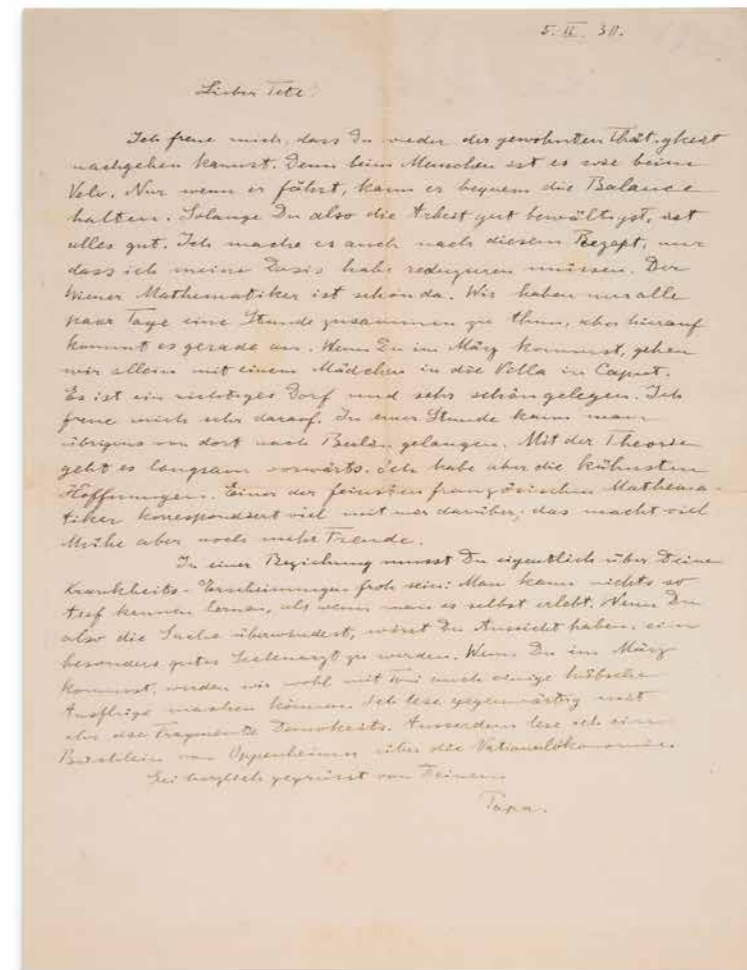 5. II. 30.
Lieber Tete!
Ich freue mich, dass Du wieder der gewohnten Thätigkeit
nachgehen kannst. Denn beim Menschen ist es wie beim
Velo. Nur wenn er fährt, kann er bequem die Balance
halten. Solange Du also die Arbeit gut bewältigst, ist
alles gut. Ich mache es auch nach diesem Rezept, nur
dass ich meine Dosis habe reduzieren müssen. Der
Wiener Mathematiker ist schon da. Wir haben nur alle
paar Tage eine Stunde zusammen zu thun, aber hierauf
kommt es gerade an. Wenn Du im März kommst, gehen
wir allein mit einem Mädchen in die Villa in Caput.
Es ist ein richtiges Dorf und sehr schön gelegen. Ich
freue mich sehr darauf. In einer Stunde kann man
übrigens von dort nach Berlin gelangen. Mit der Theorie
geht es langsam vorwärts. Ich habe aber die kühnsten
Hoffnungen. Einer der feinsten französischen Mathema-
tiker korrespondiert viel mit mir darüber; das macht viel
Mühe aber noch mehr Freude.
In einer Beziehung musst Du eigentlich über Deine
Krankheits-Erscheinungen froh sein: Man kann nichts so
tief kennen lernen, als wenn man es selbst erlebt. Wenn Du
also die Sache überwindest, wirst Du Aussicht haben, ein
besonders guter Seelenarzt zu werden. Wenn Du im März
kommst, werden wir wohl mit Toni auch einige hübsche
Ausflüge machen können. Ich lese gegenwärtig mit
die Fragmente Demokrits. Ausserdem lese ich ein
Büchlein von Oppenheimer über die Nationalökonomie.
Sei herzlich gegrüsst von Deinem
Papa.